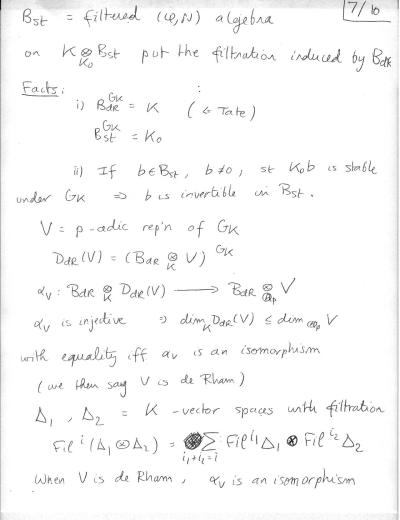 7/10
Bst = filtered (φ,N) algebra
on K ⊗_{K₀} Bst put the filtration induced by BdR
Facts:
i) BdR^{GK} = K ( ← Tate)
Bst^{GK} = K₀
ii) If b∈Bst, b≠0, st K₀b is stable
under GK ⇒ b is invertible in Bst.
V = p-adic rep'n of GK
DdR(V) = (BdR ⊗_K V)^{GK}
αV : BdR ⊗_K DdR(V) ⟶ BdR ⊗_{ℚp} V
αV is injective ⇒ dim_K DdR(V) ≤ dim_{ℚp} V
with equality iff αV is an isomorphism
(we then say V is de Rham)
Δ₁, Δ₂ = K-vector spaces with filtration
Fil^i (Δ₁ ⊗ Δ₂) = Σ_{i₁+i₂=i} Fil^{i₁}Δ₁ ⊗ Fil^{i₂}Δ₂
When V is de Rham, αV is an isomorphism